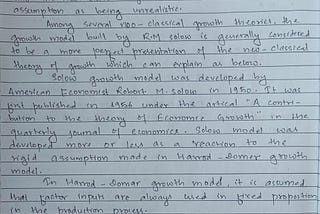 assumption as being unrealistic.
Among several neo-classical growth theories, the
growth model built by R.M solow is generally considered
to be a more perfect presentation of the new-classical
theory of growth which can explain as below.
Solow growth model was developed by
American Economist Robert M. solow in 1950. It was
first published in 1956 under the artical "A contri-
bution to the theory of Economic Growth" in the
quarterly journal of economics. Solow model was
developed more or less as a reaction to the
rigid assumption made in Harrod-Domer growth
model.
In Harrod-Domar growth model, it is assumed
that factor inputs are always used in fixed proportion
in the production process.